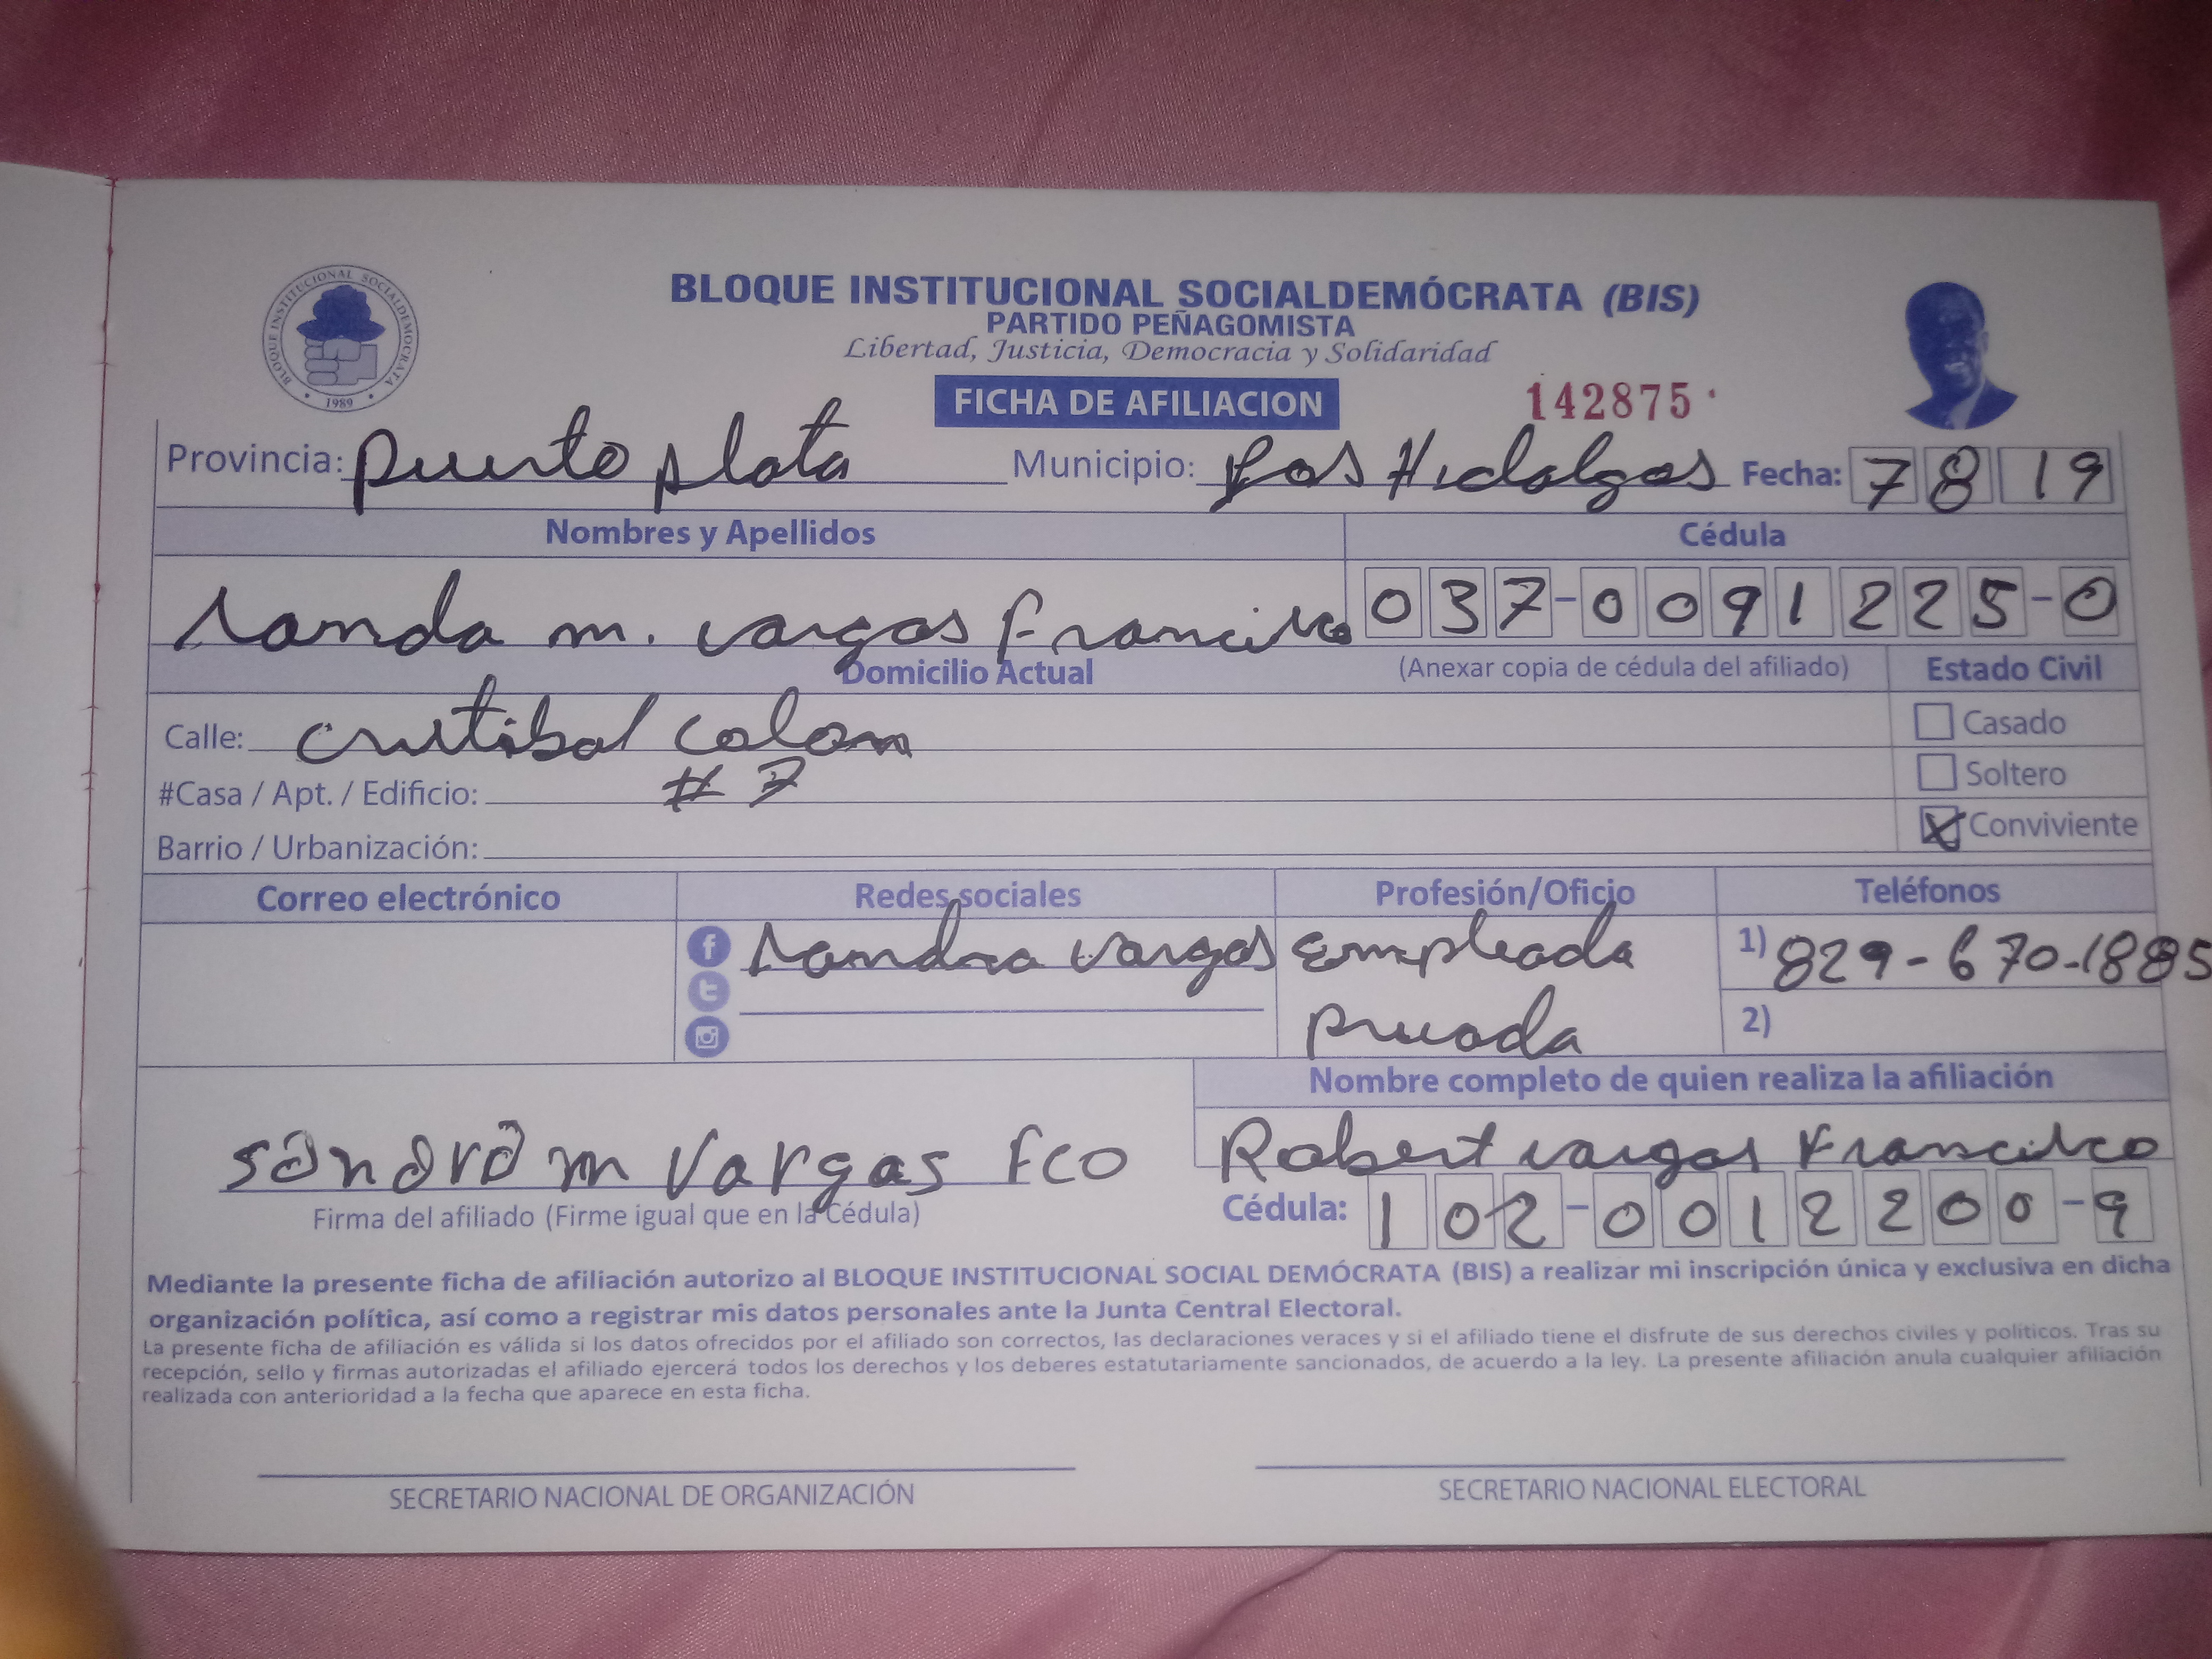 BLOQUE INSTITUCIONAL SOCIALDEMOCRATA
1989
BLOQUE INSTITUCIONAL SOCIALDEMÓCRATA (BIS)
PARTIDO PEÑAGOMISTA
Libertad, Justicia, Democracia y Solidaridad
FICHA DE AFILIACION 142875
Provincia: puerto plata Municipio: Los Hidalgos Fecha: 7 8 19
Nombres y Apellidos Cédula
m. vargas Francisco 037-0091225-0
Domicilio Actual (Anexar copia de cédula del afiliado) Estado Civil
Calle: cristibal colon Casado
#Casa / Apt. / Edificio: # 7 Soltero
Barrio / Urbanización: X Conviviente
Correo electrónico Redes sociales Profesión/Oficio Teléfonos
sandra vargas empleada 1) 829-670-1885
privada 2)
Nombre completo de quien realiza la afiliación
sandra m vargas Fco Robert vargas Francisco
Firma del afiliado (Firme igual que en la Cédula) Cédula: 102-0012200-9
Mediante la presente ficha de afiliación autorizo al BLOQUE INSTITUCIONAL SOCIAL DEMÓCRATA (BIS) a realizar mi inscripción única y exclusiva en dicha
organización política, así como a registrar mis datos personales ante la Junta Central Electoral.
La presente ficha de afiliación es válida si los datos ofrecidos por el afiliado son correctos, las declaraciones veraces y si el afiliado tiene el disfrute de sus derechos civiles y políticos. Tras su
recepción, sello y firmas autorizadas el afiliado ejercerá todos los derechos y los deberes estatutariamente sancionados, de acuerdo a la ley. La presente afiliación anula cualquier afiliación
realizada con anterioridad a la fecha que aparece en esta ficha.
SECRETARIO NACIONAL DE ORGANIZACIÓN SECRETARIO NACIONAL ELECTORAL